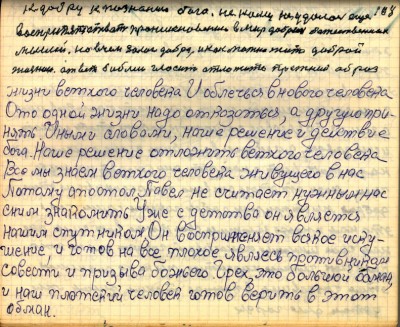 недобру к познанию бога. не кому не удалос еще 188
воспрепятствоват проникновению в мир добрых божественных
мыслей. но в чем закон добра, и как можно жить доброй
жизни. ответ библии гласит отложить прежний образ
жизни ветхого человека И облечься в нового человека
Ото одной жизни надо отказоться, а другую при-
нять. Иными словами, наше решение и действие
бога. Наше решение отложить ветхого человека
Все мы знаем ветхого человека живущего в нас
Потому апостол Павел не считает нужным нас
с ним знакомить Уже с детства он является
нашим спутником. Он воспринемает всякое иску-
шение, и готов на все плохое являясь противником
совести и призыва божьего. Грех, это большой обман,
и наш плотской человек готов верить в этот
обман.